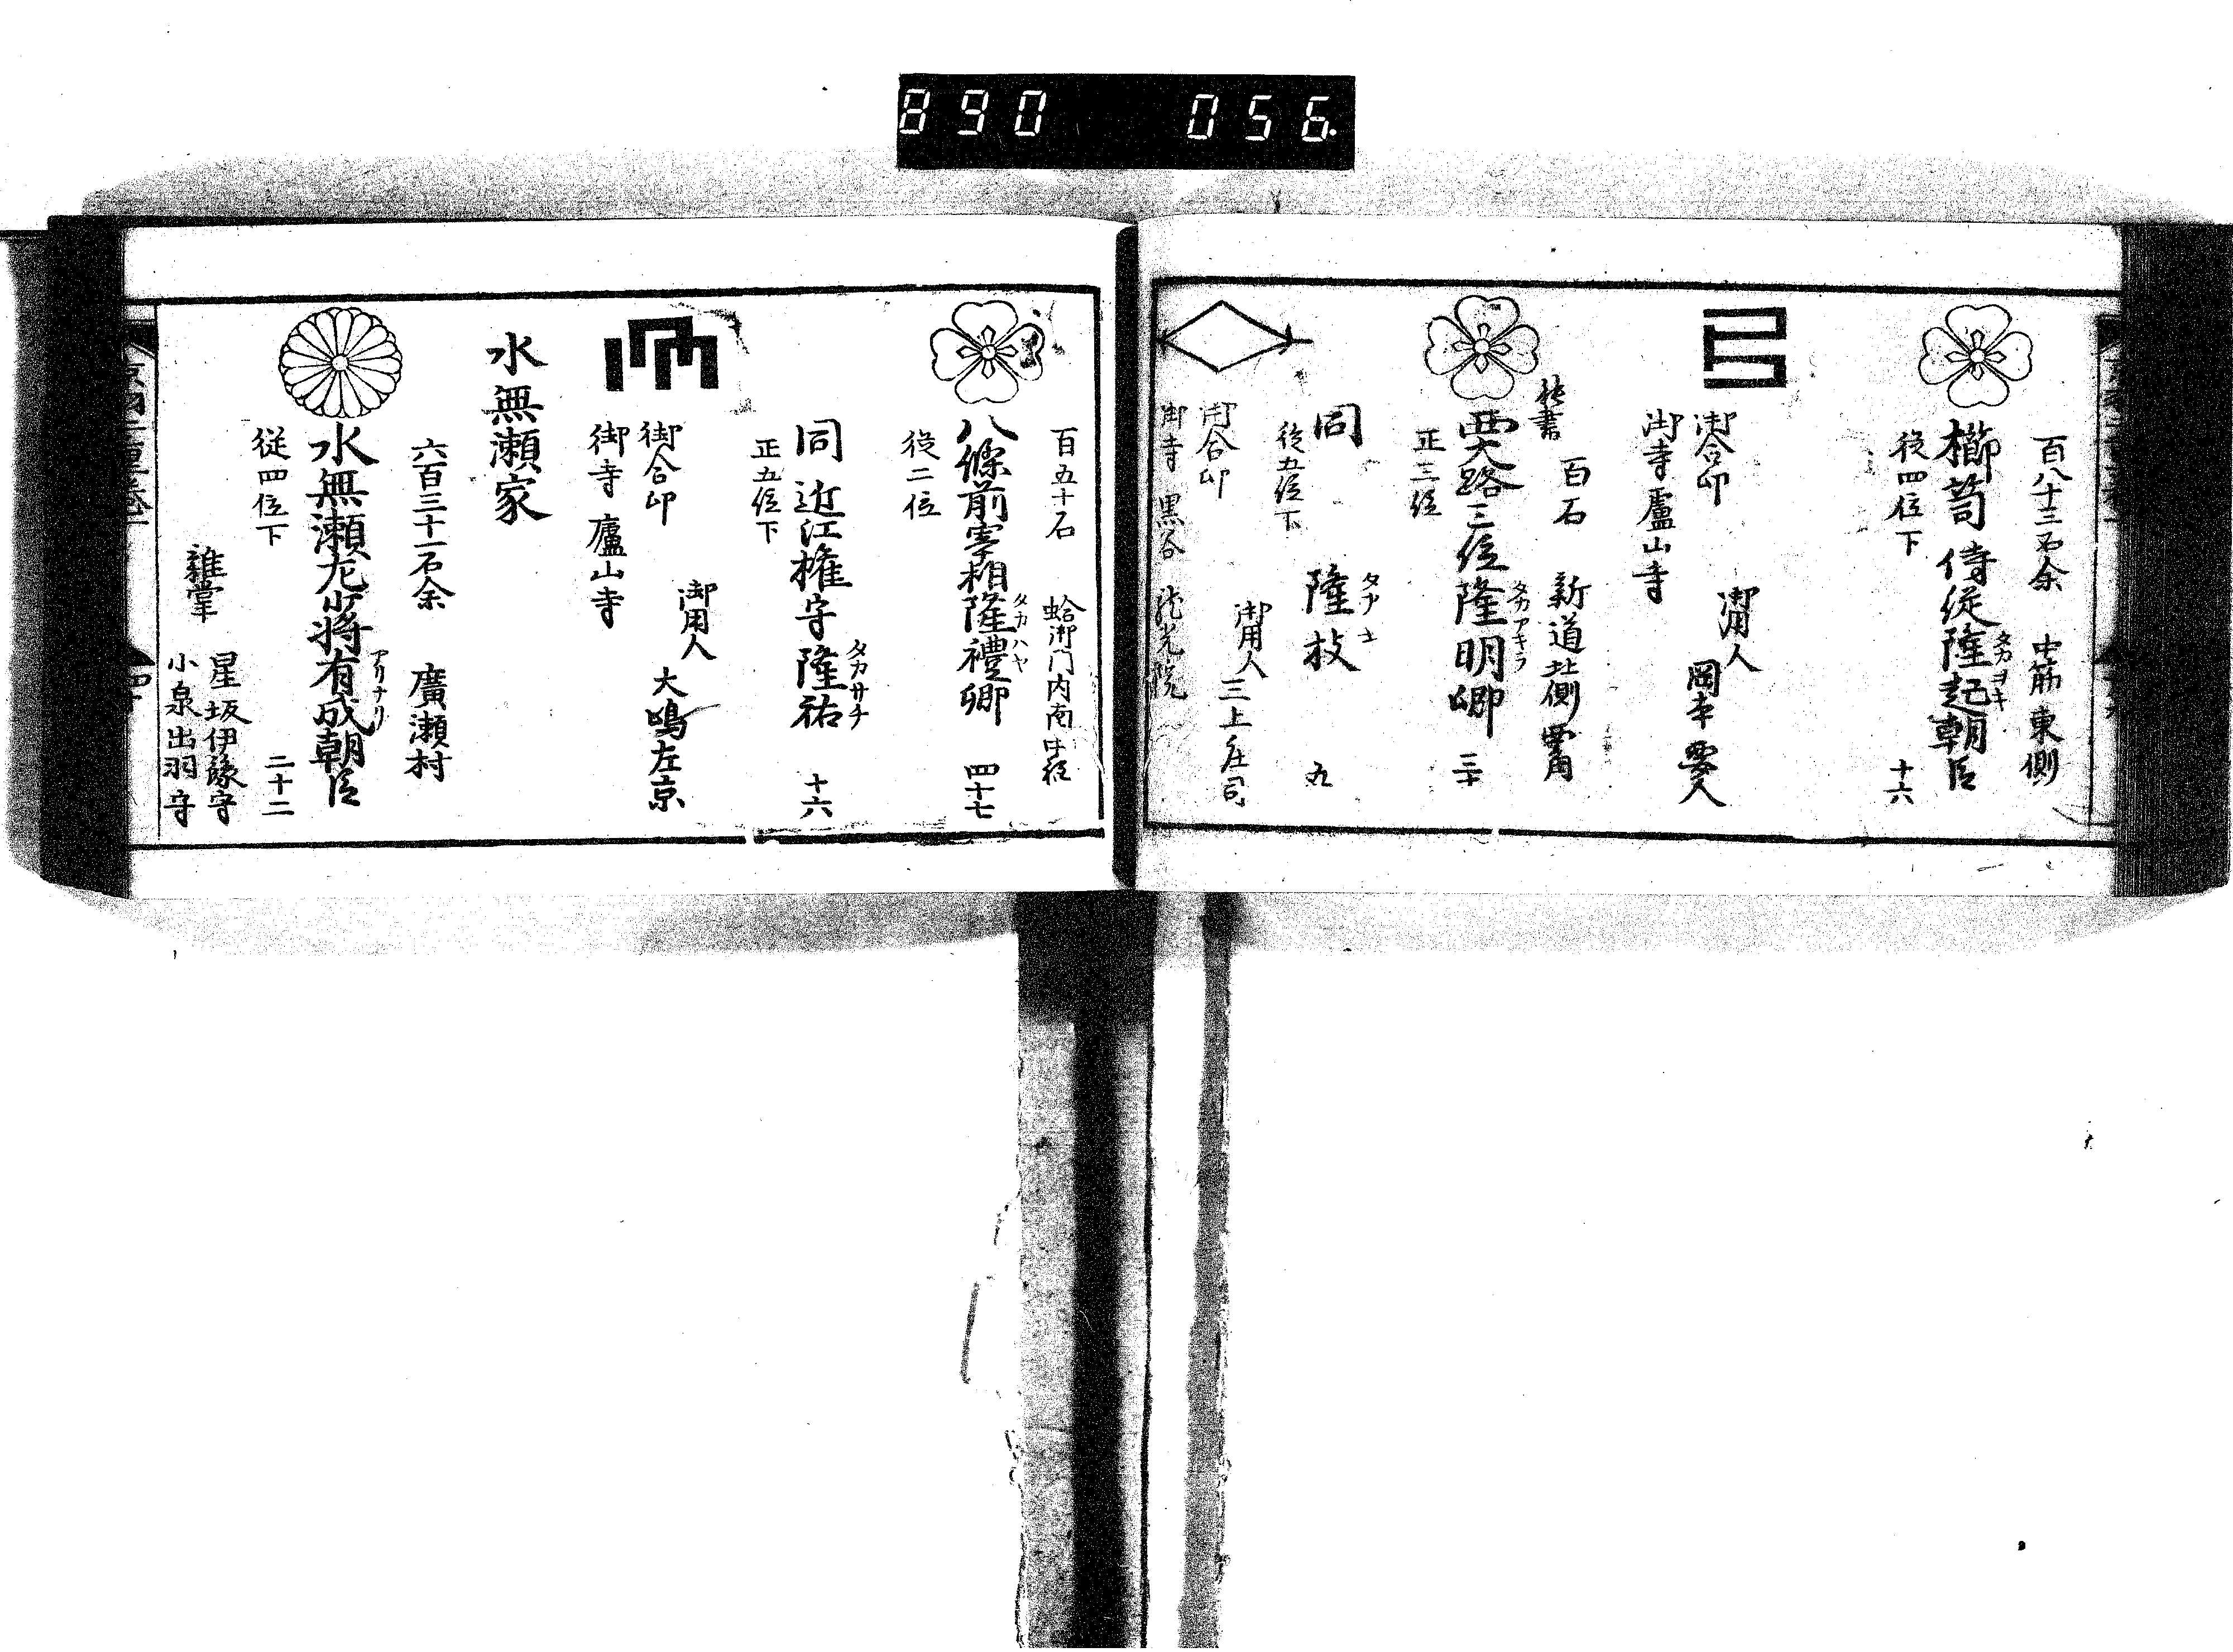 890 056
百八十三石余 中筋東側
櫛笥侍従隆起朝臣 十六
タカヲキ
従四位下
御用人 岡本要人
御合印
御寺廬山寺
百石 新道北側東角
粟路三位隆明卿 三十
タカアキラ
正三位
同 隆枝 九
従五位下
御用人 三上庄司
御合印
御寺 黒谷 光院
百五十石 蛤御門内南
八條前宰相隆禮卿 四十七
タカハヤ
従二位
同 近江権守隆祐 十六
タカサチ
正五位下
御用人 大嶋左京
御合印
御寺 廬山寺
水無瀬家
六百三十一石余 廣瀬村
水無瀬左少将有成朝臣 二十二
アリナリ
従四位下
雑掌 星坂伊豫守
小泉出羽守